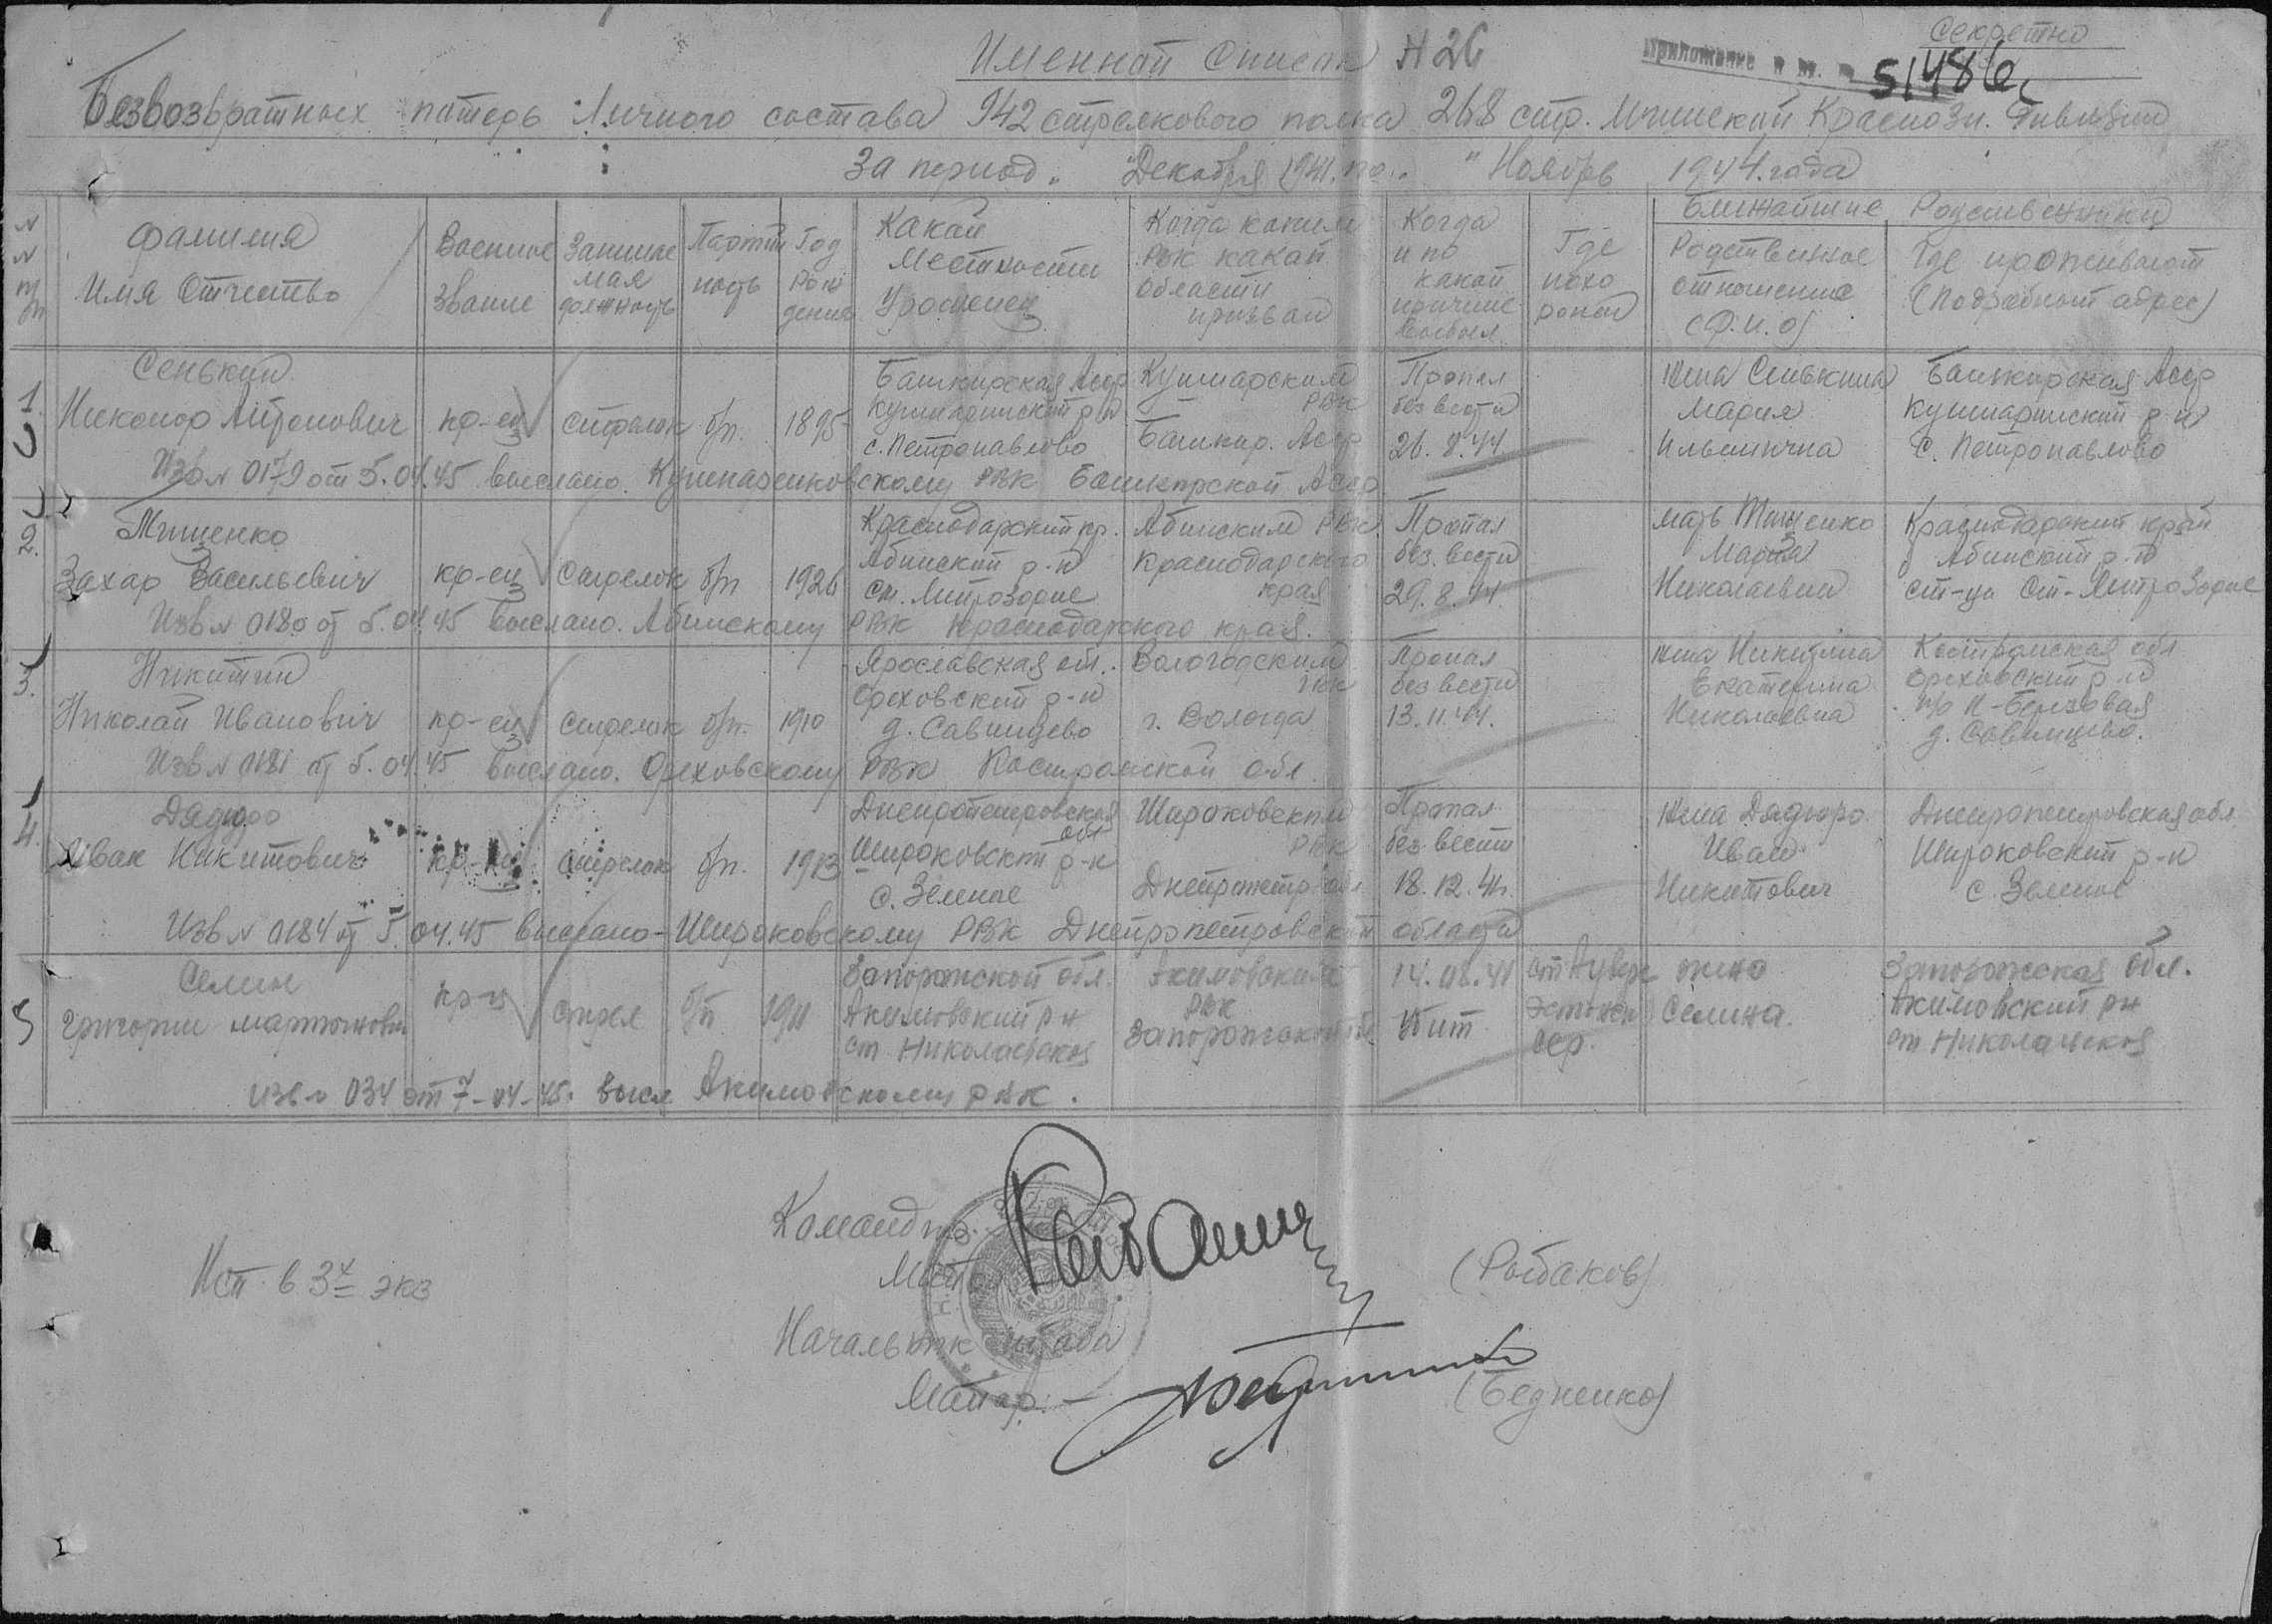 Секретно
Именной список N 26
Приложение к вх. 51486с
Безвозвратных потерь личного состава 942 стрелкового полка 268 стр. Мгинской Краснозн. Дивизии
За период " Декабря 1941. по " Ноябрь 1944. года
N N п/п
Фамилия Имя Отчество
Военное звание
Занимаемая должность
Партийность
Год рождения
Какой местности уроженец
Когда каким РВК какой области призван
Когда и по какой причине выбыл
Где похоронен
Ближайшие Родственники
Родственное отношение (Ф.И.О)
Где проживают (подробный адрес)
1.
Сенькин
Никонор Айтонович
кр-ец
стрелок
б/п.
1895
Башкирская Асср
Кушнаринский р-н
с. Петропавлово
Кушнарским РВК
Башкир. Асср
Пропал
без вести
26.8.44.
жена Сенькина
Мария
Ильинична
Башкирская Асср
Кушнаринский р-н
с. Петропавлово
Изв N 0179 от 5.04.45 выслано. Кушнаренковскому РВК Башкирской Асср
2.
Тищенко
Захар Васильевич
кр-ец
стрелок
б/п
1926
Краснодарский кр.
Абинский р-н
Абинским РВК
Краснодарского
края
Пропал
без вести
29.8.44.
мать Тищенко
Мария
Николаевна
Краснодарский край
Абинский р-н
Изв N 0180 от 5.04.45 выслано. Абинскому РВК Краснодарского края.
3.
Никитин
Николай Иванович
кр-ец
стрелок
б/п.
1910
Ярославская обл.
Ореховский р-н
д. Савинцево
Вологодским ГВК
г. Вологда
Пропал
без вести
13.11.44.
жена Никитина
Екатерина
Николаевна
Костромская обл
Ореховский р-н
п/о Н-Березовая
д. Савинцево.
Изв N 0181 от 5.04.45 выслано. Ореховскому РВК Костромской обл.
4.
Дадюро
Иван Никитович
кр-ец
стрелок
б/п.
1913
Днепропетровская
обл
Широковский р-н
с. Зеленое
Широковским
РВК
Днепропетр. обл
Пропал
без вести
18.12.41.
жена Дадюро
Иван
Никитович
Днепропетровская обл
Широковский р-н
с. Зеленое
Изв N 0184 от 5.04.45 выслано - Широковскому РВК Днепропетровской области
5
Селин
Григории мартынович
кр-ц
стрел
б/п
1911
Запорожской обл.
Акимовский рн
ст Николаевская
Акимовским
РВК
Запорожской обл
убит
Эстонск
сср.
жена
Селина.
Запорожская обл.
Акимовский рн
ст Николаевская
изв N 034 от 7-04-45. высл Акимовскому РВК.
Командир
(Рыбаков)
Исп. в 3х экз
Начальник штаба
Майор
(Бедненко)